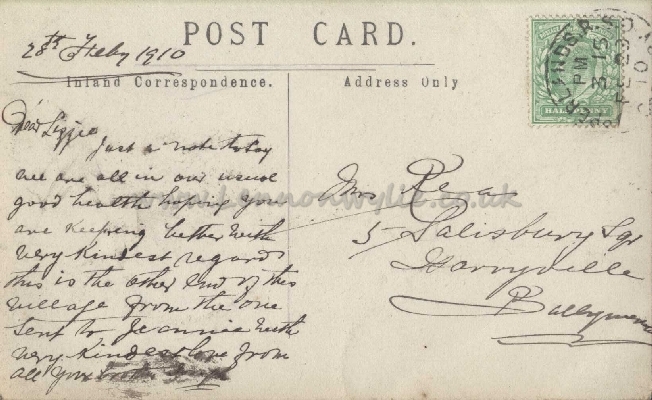 POST CARD.
28th Feby 1910
Inland Correspondence.
Address Only
Dear Lizzie
Just a note today
we are all in our usual
good health hoping you
are keeping better with
very kindest regards
this is the other end of this
village from the one
sent to Jeannie with
very kindest love from
all your
Mrs Rea
5 Salisbury Sqr
Harryville
Ballymena
HALFPENNY
3 15 PM
FE 28
10
www.lennonwylie.co.uk